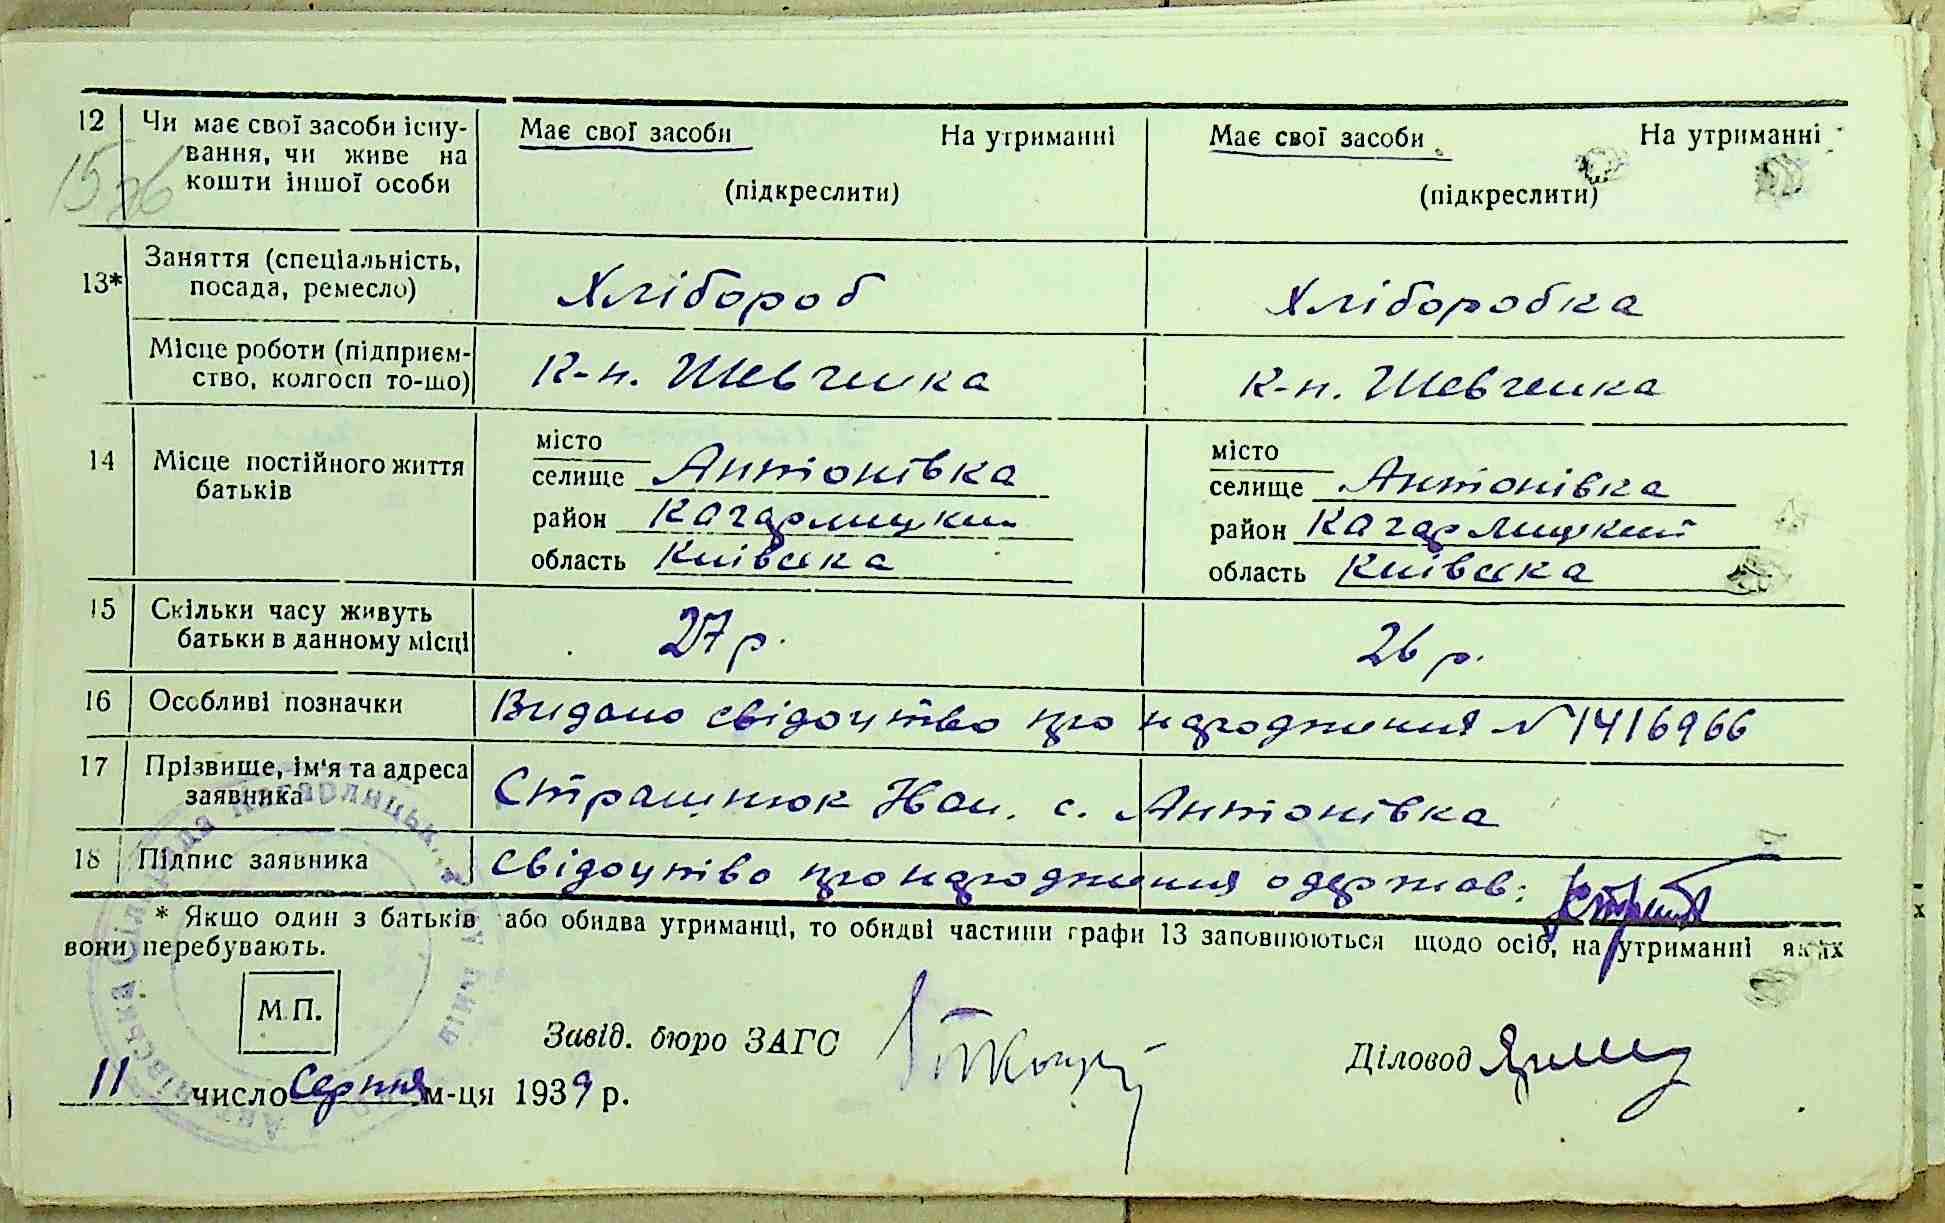 12 Чи має свої засоби існу-
вання, чи живе на
кошти іншої особи
Має свої засоби На утриманні
(підкреслити)
Має свої засоби На утриманні
(підкреслити)
13* Заняття (спеціальність,
посада, ремесло)
Хлібороб
Хліборобка
Місце роботи (підприєм-
ство, колгосп то-що)
К-п. Шевченка
К-п. Шевченка
14 Місце постійного життя
батьків
місто
селище Антонівка
район Кагарлицький
область Київська
місто
селище Антонівка
район Кагарлицький
область Київська
15 Скільки часу живуть
батьки в данному місці
27 р.
26 р.
16 Особливі позначки
Видано свідоцтво про народження № 1416966
17 Прізвище, ім'я та адреса
заявника
Страшнюк Нан. с. Антонівка
18 Підпис заявника
Свідоцтво про народження одержав:
* Якщо один з батьків або обидва утриманці, то обидві частини графи 13 заповнюються щодо осіб, на утриманні яких
вони перебувають.
М.П.
Завід. бюро ЗАГС
Діловод
11 число Серпня м-ця 1939 р.